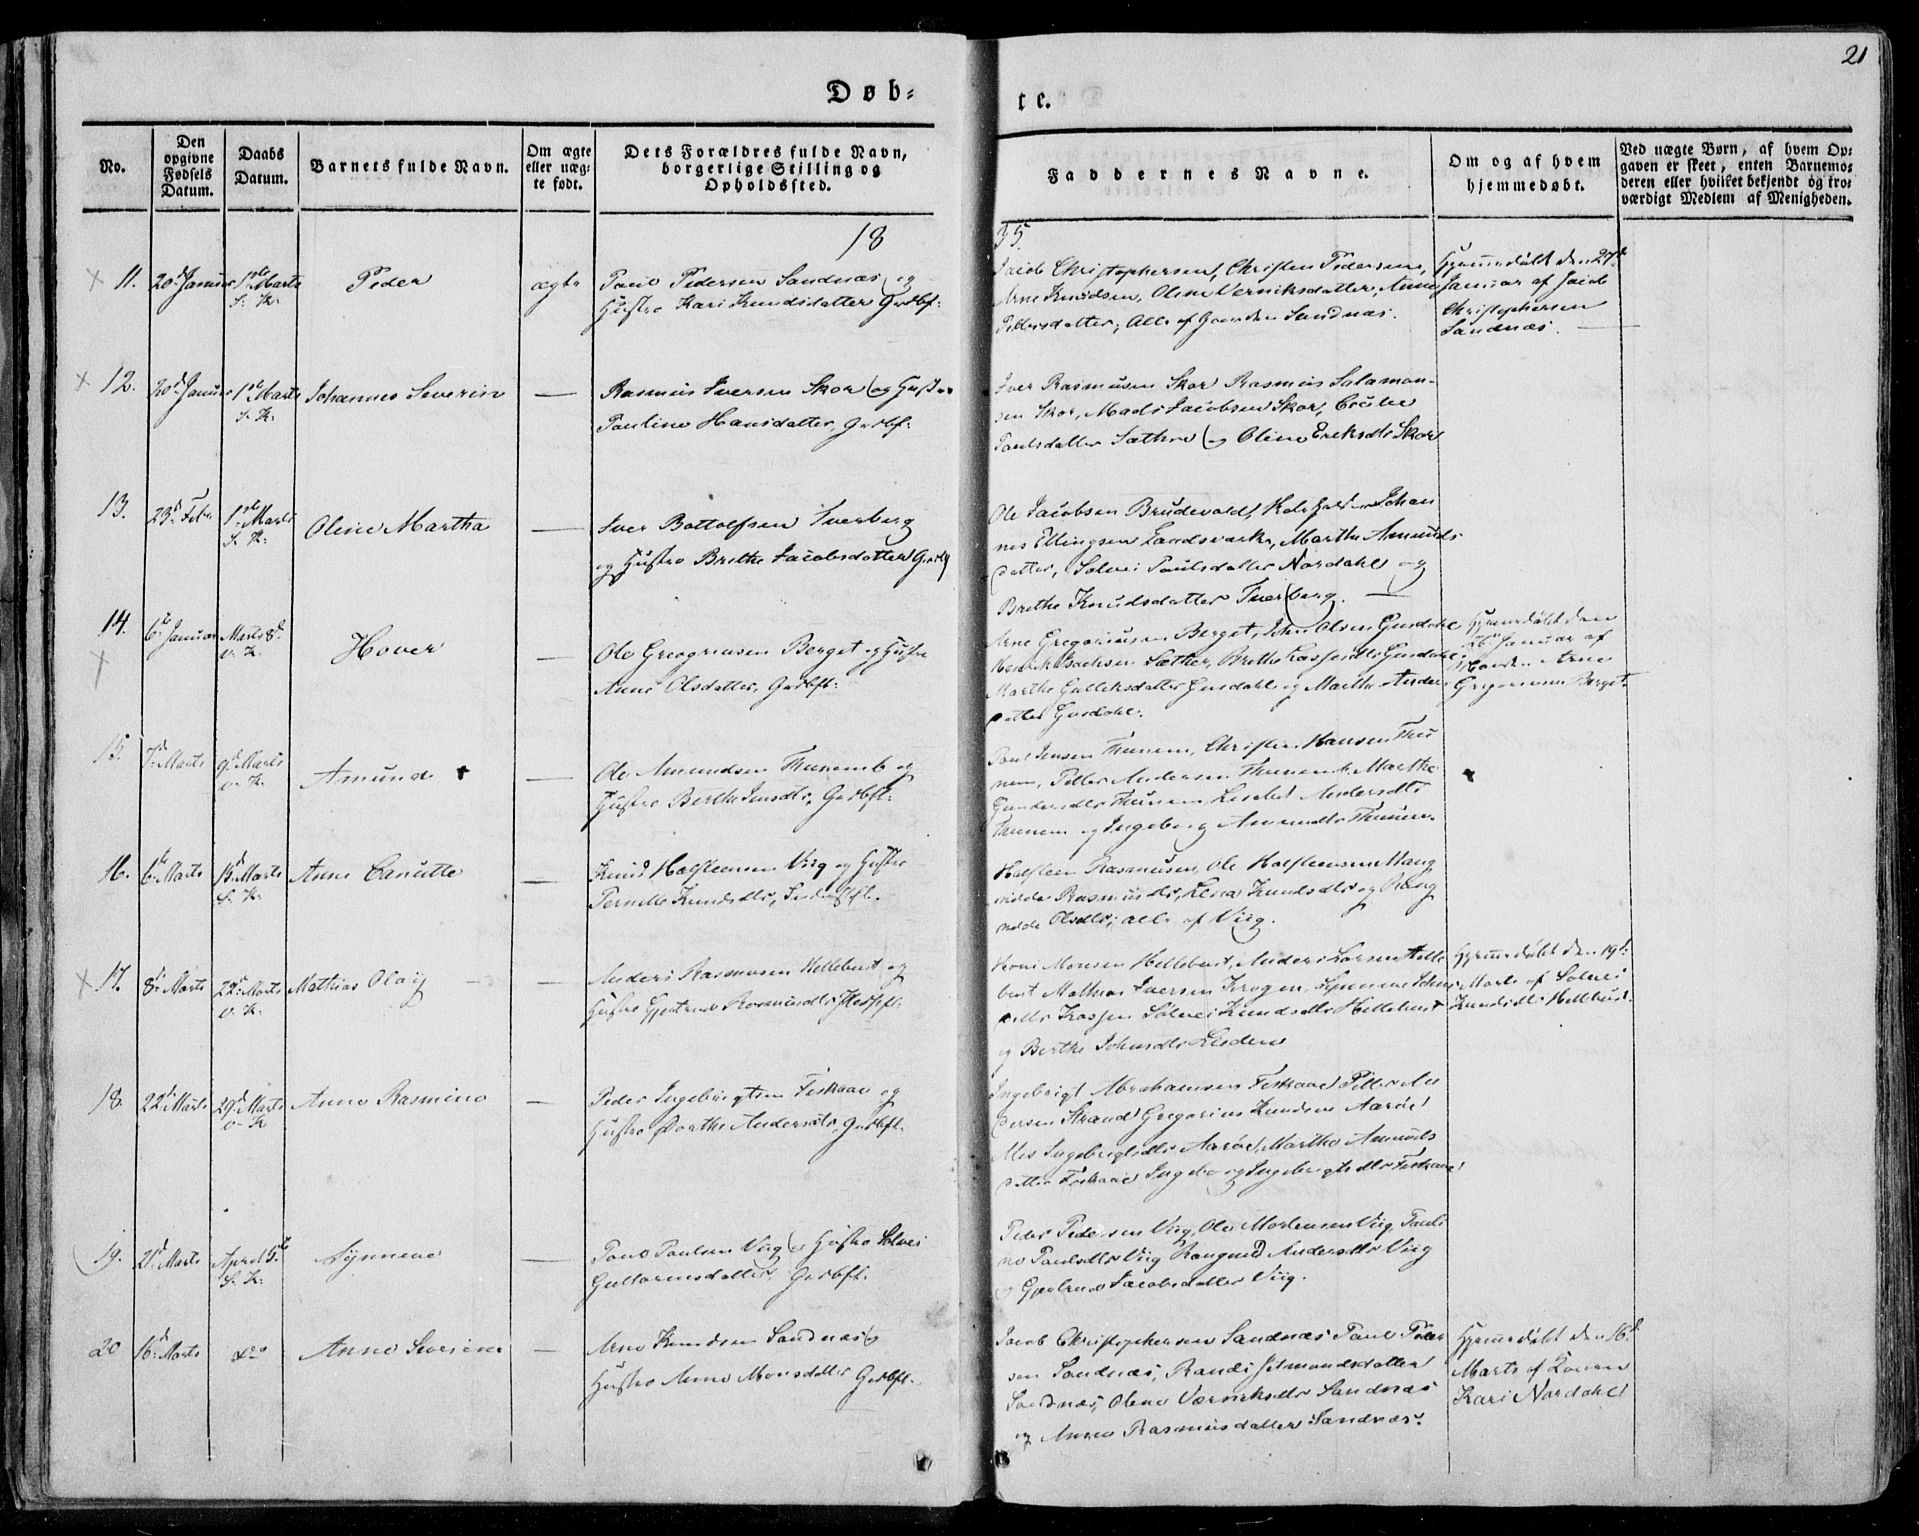 21
Døb-
te.
No.
Den opgivne Fødsels Datum.
Daabs Datum.
Barnets fulde Navn.
Om ægte eller uægte født.
Dets Forældres fulde Navn, borgerlige Stilling og Opholdssted.
Faddernes Navne.
Om og af hvem hjemmedøbt.
Ved uægte Børn, af hvem Opgaven er skeet, enten Barnemoderen eller hvilket bekjendt og troværdigt Medlem af Menigheden.
18
35.
11. 20d Januar 1ste Marts S. K. Peder ægte
Paul Pedersen Sandnæs og
Hustro Kari Knudsdatter Grdbf:
Jacob Christophersen, Christen Pedersen,
Arne Knudsen, Oline Verniksdatter, Anne
Pettersdatter, Alle af Gaarden Sandnæs.
Hjemmedøbt den 27d
Januar af Jacob
Christophersen
Sandnæs.
12. 20d Januar 1ste Marts S. K. Johannes Severin —
Rasmus Iversen Skor og Hustro
Pauline Hansdatter, Grdbf:
Iver Rasmusen Skor Rasmus Salamon-
sen Skor, Mads Jacobsen Skor,
Paulsdatter Sæthre og Oline Eriksdtr Skor
13. 23d Febr 1ste Marts S. K. Oline Martha —
Iver Bottolfsen Tverberg
og Hustro Brethe Jacobsdatter
Ole Jacobsen Brudevold, Johan
nes Ellingsen Landsværk, Marthe Amunds
datter, Solvei Paulsdatter Nordahl og
Brethe Knudsdatter Tverberg. —
14. 6te Januar Marts 8d V. K. Hover —
Ole Greogriusen Berget og Hustro
Anne Olsdatter, Grdbfl:
Arne Gregoriusen Berget, John Olsen Gusdahl
Henrik Isachsen Sæther, Brethe Gusdahl,
Marthe Gulliksdatter Gusdahl og Marthe Anders
datter Gusdahl.
Hjemmedøbt den
26 Januar af
Arne
Gregoriusen Berget.
15. 7d Marts 9d Marts V. K. Amund —
Ole Amundsen Thunem og
Hustro Berthe Jensdtr, Grdbfl:
Poul Jensen Thunem, Christen Hansen Thu
nem, Petter Andersen Thunem, Marthe
Gundersdtr Thunem, Lisebet Andersdtr
Thunem og Ingeborg Amundsdtr Thunem.
16. 6te Marts 15d Marts S. K. Anne Canutte —
Knud Halsteensen Viig og Hustro
Pernille Knudsdtr,
Halsteen Rasmusen, Ole Halsteensen Rang
nilde Rasmusdtr, Lena Knudsdtr og Rang
nilde Olsdtr, alle af Viig.
17. 8de Marts 22d Marts V. K. Mathias Olaij —
Anders Rasmusen Hellebust og
Hustro Gjertrud Rasmusdtr
Mons Monsen Hellebust, Anders Larsen Helle
bust Mathias Iversen Krogen, Synneve Johns
dtr Solvei Knudsdtr Hellebust
og Berthe Johnsdtr
Hjemmedøbt den 19d
Marts af Solvei
Knudsdtr Hellebust.
18. 22d Marts 29d Marts V. K. Anne Rasmine —
Peder Ingebrigtsen Fiskaae og
Hustro Dorthe Andersdtr, Grdbfl.
Ingebrigt Abrahamsen Fiskaae Petter An
dersen Strand Gregorius Knudsen Aarøe
Mes Ingebrigtsdtr Aarøe, Marthe Amunds
datter Fiskaae Ingeborg Ingebrigtsdtr Fiskaae
19. 21d Marts April 5te S. K. Synneve —
Poul Paulsen Viig og Hustro Solvei
Guttormsdatter, Grdbfl.
Peder Pedersen Viig, Ole Mortensen Viig, Pauli
ne Paulsdtr Viig Rangnid Andersdtr Viig
og Gjertrud Jacobsdatter Viig.
20 16d Marts dto Anne Severine —
Arne Knudsen Sandnæs og
Hustro Anne Monsdatter Grdbfl.
Jacob Christophersen Sandnæs Paul Peder
sen Sandnæs, Randi Sjimundsdatter
Sandnæs, Olena Værniksdtr Sandnæs
og Anne Rasmusdatter Sandnæs.
Hjemmedøbt den 16d
Marts af Konen
Kari Nordahl